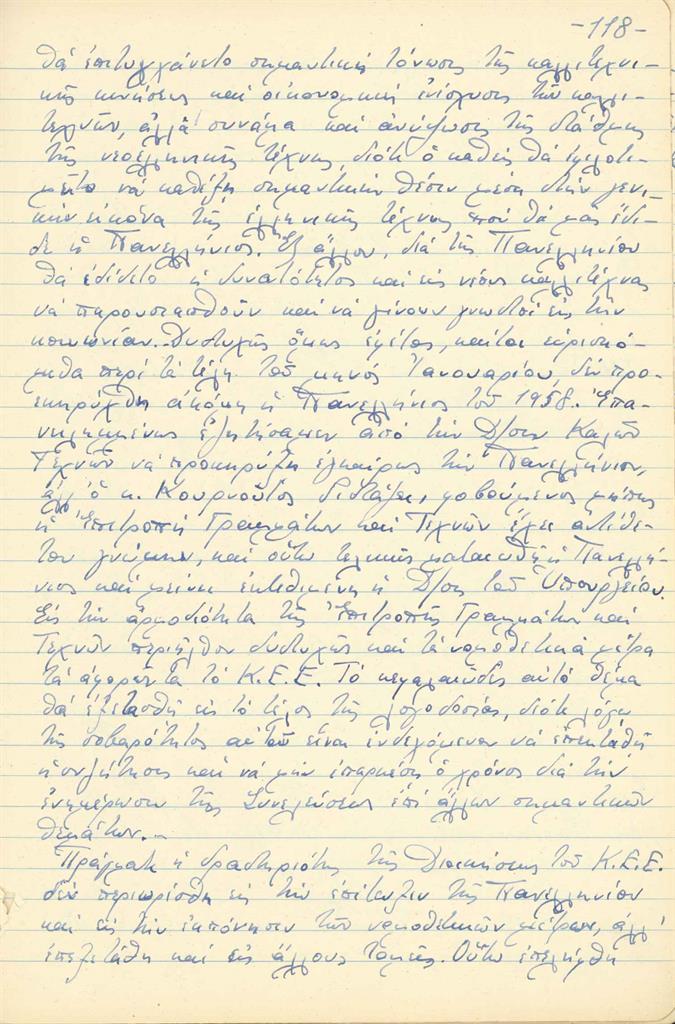 -118-
θά ἐπετυγχάνετο σημαντική τόνωσις τῆς καλλιτεχνι-
κῆς κινήσεως καί οἰκονομική ἐνίσχυσις τῶν καλλι-
τεχνῶν, ἀλλά συνάμα καί ἀνύψωσις τῆς στάθμης
τῆς νεοελληνικῆς τέχνης, διότι ὁ καθείς θά ἐφιλοτι-
μεῖτο νά καθέξῃ σημαντικήν θέσιν μέσα στήν γενι-
κήν εἰκόνα τῆς ἑλληνικῆς τέχνης πού θά μας ἔδι-
δε ἡ Πανελλήνιος. Ἐξ ἄλλου, διά τῆς Πανελληνίου
θά ἐδίνετο ἡ δυνατότητος καί εἰς νέους καλλιτέχνας
νά παρουσιασθοῦν καί νά γίνουν γνωστοί εἰς τήν
κοινωνίαν. Δυστυχῶς ὅμως ἐφέτος, καίτοι εὑρισκό-
μεθα περί τά τέλη τοῦ μηνός Ἰανουαρίου, δέν προ-
εκηρύχθη ἀκόμη ἡ Πανελλήνιος τοῦ 1958. Ἐπα-
νειλημμένως ἐζητήσαμεν ἀπό τήν Δ/σιν Καλῶν
Τεχνῶν νά προκηρύξῃ ἐγκαίρως τήν Πανελλήνιον,
ἀλλ' ὁ κ. Κουρνοῦτος διστάζει, φοβούμενος μήπως
ἡ Ἐπιτροπή Γραμμάτων καί Τεχνῶν ἔχει ἀντίθε-
τον γνώμην, καί οὕτω τελικῶς ματαιωθῇ ἡ Πανελλή-
νιος καί μείνει ἐκτεθειμένη ἡ Δ/σις τοῦ Ὑπουργείου.
Εἰς τήν ἁρμοδιότητα τῆς Ἐπιτροπῆς Γραμμάτων καί
Τεχνῶν περιῆλθον δυστυχῶς καί τά νομοθετικά μέτρα
τά ἀφορῶντα τό Κ.Ε.Ε. Τό κεφαλαιῶδες αὐτό θέμα
θά ἐξετασθῇ εἰς τό τέλος τῆς λογοδοσίας, διότι λόγῳ
τῆς σοβαρότητος αὐτοῦ εἶναι ἐνδεχόμενον νά ἐπεκταθῇ
ἡ συζήτησις καί νά μήν ἐπαρκέσῃ ὁ χρόνος διά τήν
ἐνημέρωσιν τῆς Συνελεύσεως ἐπί ἄλλων σημαντικῶν
θεμάτων.-
Πράγματι ἡ δραστηριότης τῆς Διοικήσεως τοῦ Κ.Ε.Ε.
δέν περιωρίσθη εἰς τήν ἐπίτευξιν τῆς Πανελληνίου
καί εἰς τήν ἐκπόνησιν τῶν νομοθετικῶν μέτρων, ἀλλ'
ἐπεξετάθη καί εἰς ἄλλους τομεῖς. Οὕτω ἐπελήφθη